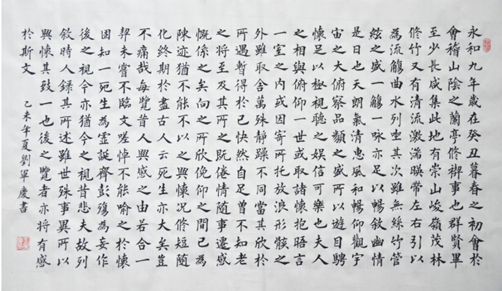 永和九年歲在癸丑暮春之初會於
會稽山陰之蘭亭脩禊事也群賢畢
至少長咸集此地有崇山峻嶺茂林
脩竹又有清流激湍暎帶左右引以
為流觴曲水列坐其次雖無絲竹管
絃之盛一觴一詠亦足以暢敘幽情
是日也天朗氣清惠風和暢仰觀宇
宙之大俯察品類之盛所以遊目騁
懷足以極視聽之娛信可樂也夫人
之相與俯仰一世或取諸懷抱晤言
一室之內或因寄所托放浪形骸之
外雖取舍萬殊靜躁不同當其欣於
所遇暫得於己快然自足曾不知老
之將至及其所之既倦情隨事遷感
慨係之矣向之所欣俛仰之間已為
陳迹猶不能不以之興懷況修短隨
化終期於盡古人云死生亦大矣豈
不痛哉每覽昔人興感之由若合一
契未嘗不臨文嗟悼不能喻之於懷
固知一死生為虛誕齊彭殤為妄作
後之視今亦猶今之視昔悲夫故列
敘時人錄其所述雖世殊事異所以
興懷其致一也後之覽者亦將有感
於斯文 乙未年夏劉軍慶書